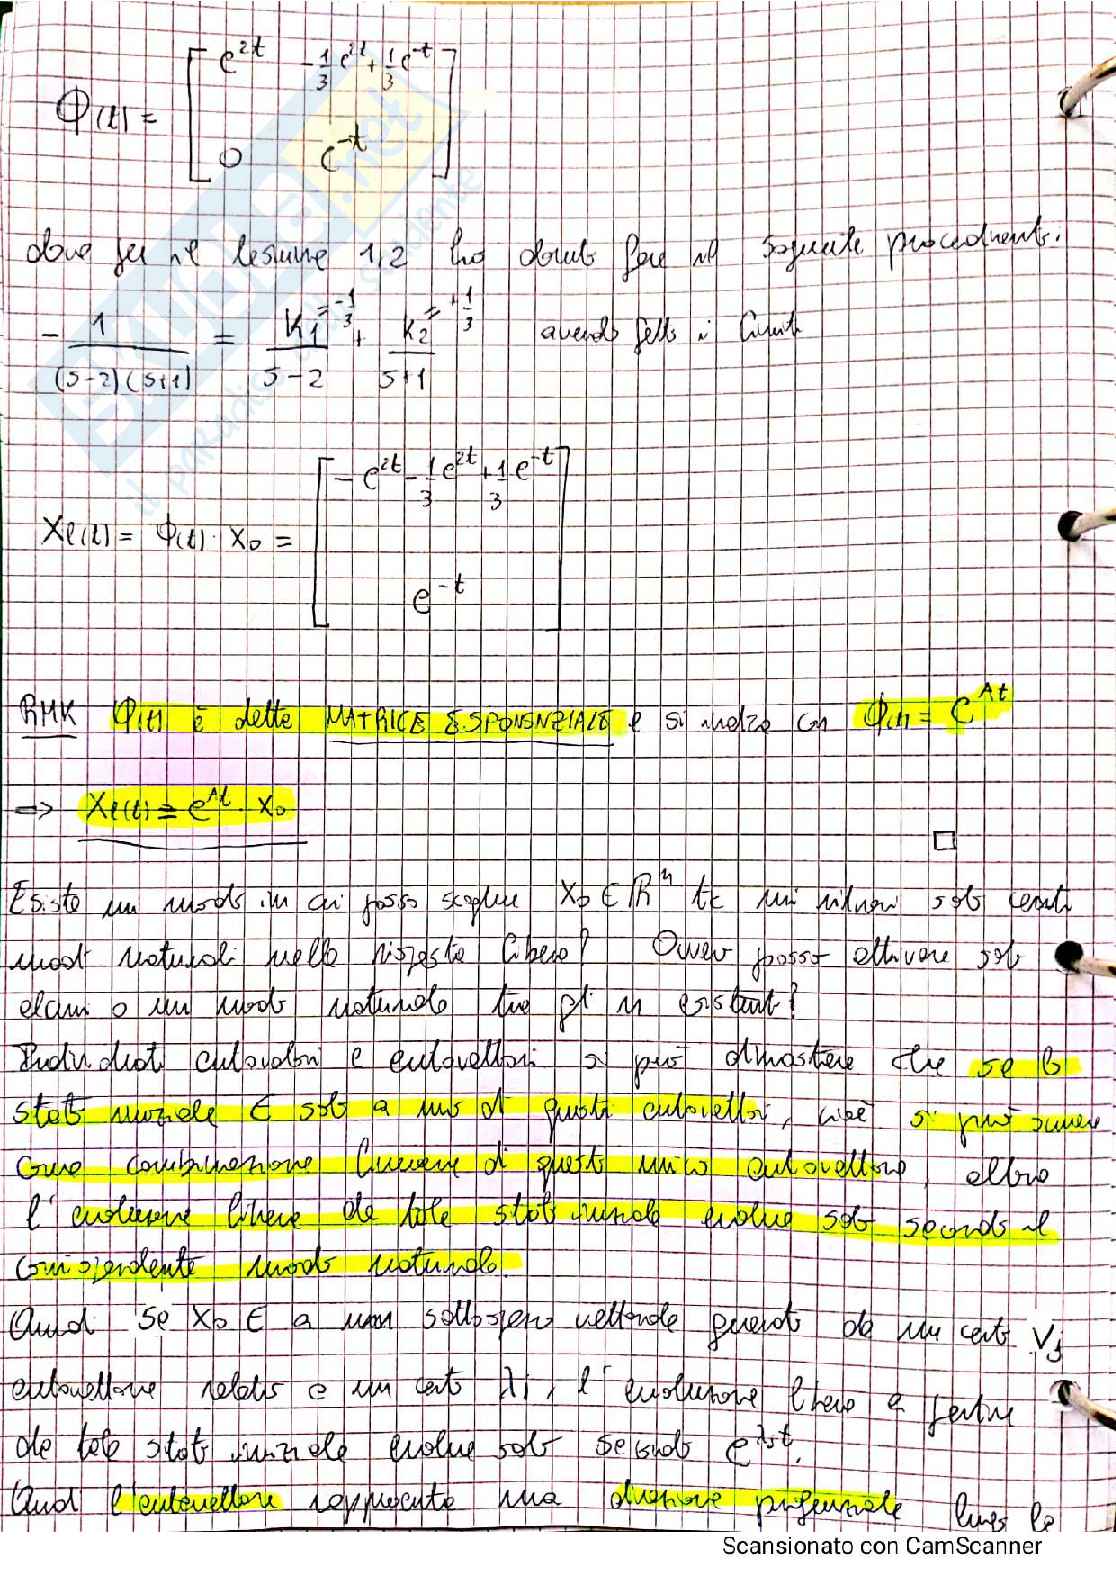 Φ(t) = [ e^{2t}   -1/3 e^{2t} + 1/3 e^{-t} ; 0   e^{-t} ]
dove per il termine 1,2 ho dovuto fare il seguente procedimento.
- 1/((s-2)(s+1)) = K1/(s-2) + K2/(s+1)   K1 = -1/3   K2 = +1/3   avendo fatto i limiti
Xl(t) = Φ(t) · X0 = [ -e^{2t} - 1/3 e^{2t} + 1/3 e^{-t} ; e^{-t} ]
RMK Φ(t) è detta MATRICE ESPONENZIALE e si indica con Φ(t) = e^{At}
=> Xl(t) = e^{At} · X0
□
Esiste un modo in cui posso scegliere X0 ∈ ℝ^n tc mi ritrovi solo certi
modi naturali nella risposta libera? Ovvero posso attivare solo
alcuni o un modo naturale tra gli n esistenti?
Individuati autovalori e autovettori si può dimostrare che se lo
stato iniziale ∈ solo a uno di questi autovettori, cioè si può scrivere
come combinazione lineare di questo unico autovettore, allora
l'evoluzione libera da tale stato iniziale evolve solo secondo il
corrispondente modo naturale.
Quindi se X0 ∈ a un sottospazio vettoriale generato da un certo Vj
autovettore relativo a un certo λj, l'evoluzione libera a partire
da tale stato iniziale evolve solo secondo e^{λjt}.
Quindi l'autovettore rappresenta una direzione preferenziale lungo la
Scansionato con CamScanner